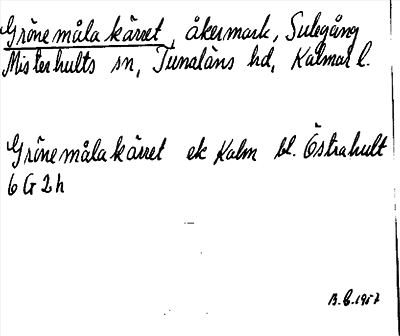 Grönemåla kärret, åkermark, Sulegång
Misterhults sn, Tunaläns hd, Kalmar l.
Grönemåla kärret ek Kalm bl. Östrahult
6 G 2 h